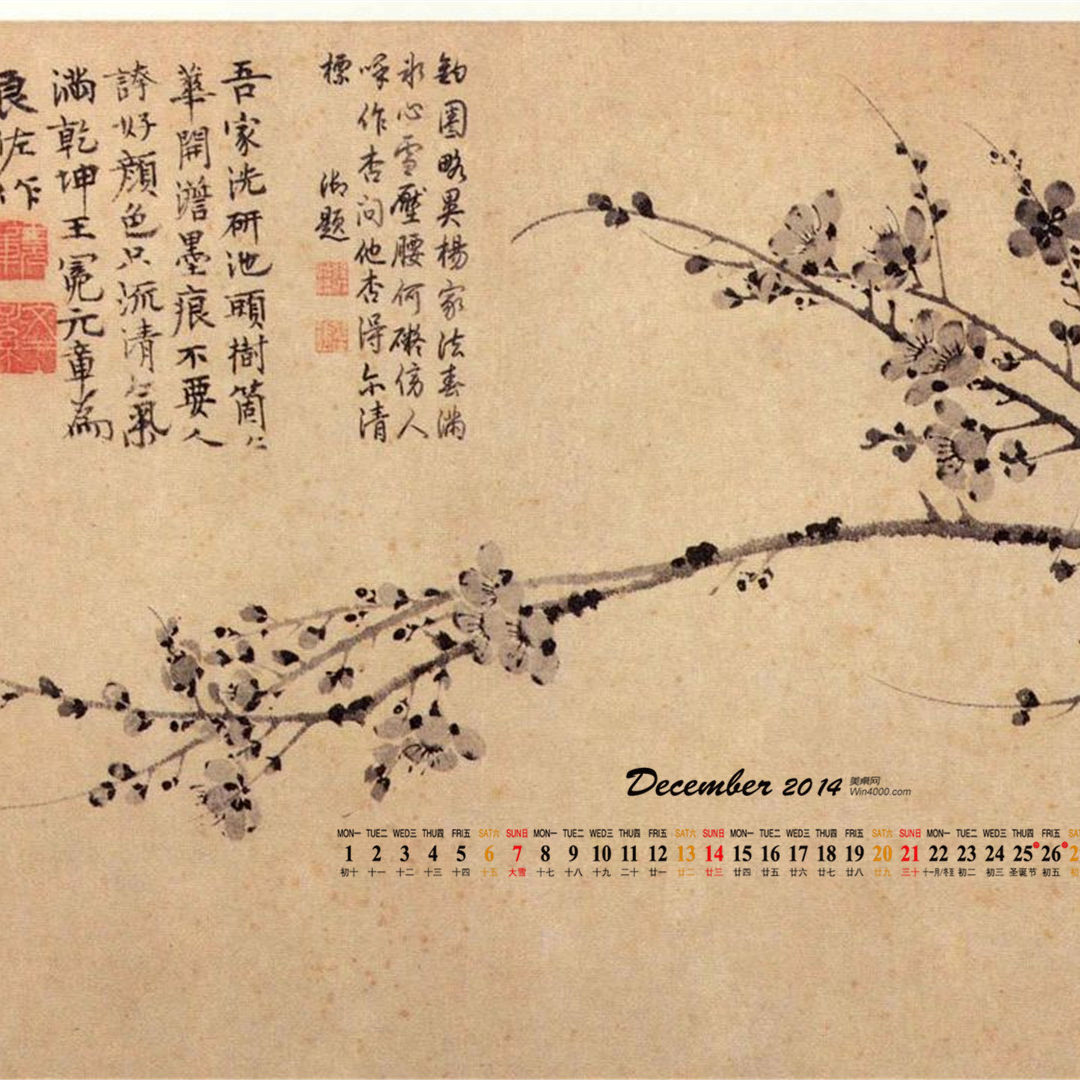 鈎圈略異楊家法春滿
冰心雪壓腰何礙傍人
呼作杏問他杏得尔清
標
題
吾家洗研池頭樹箇〻
華開澹墨痕不要人
誇好顏色只流清氣
滿乾坤王冕元章為
良佐作
December 2014 美桌网
Win4000.com
MON一 TUE二 WED三 THU四 FRI五 SAT六 SUN日 MON一 TUE二 WED三 THU四 FRI五 SAT六 SUN日 MON一 TUE二 WED三 THU四 FRI五 SAT六 SUN日 MON一 TUE二 WED三 THU四 FRI五 SAT六
1 2 3 4 5 6 7 8 9 10 11 12 13 14 15 16 17 18 19 20 21 22 23 24 25 26 2
初十 十一 十二 十三 十四 十五 大雪 十七 十八 十九 二十 廿一 廿二 廿三 廿四 廿五 廿六 廿七 廿八 廿九 三十 十一月/冬至 初二 初三 圣诞节 初五